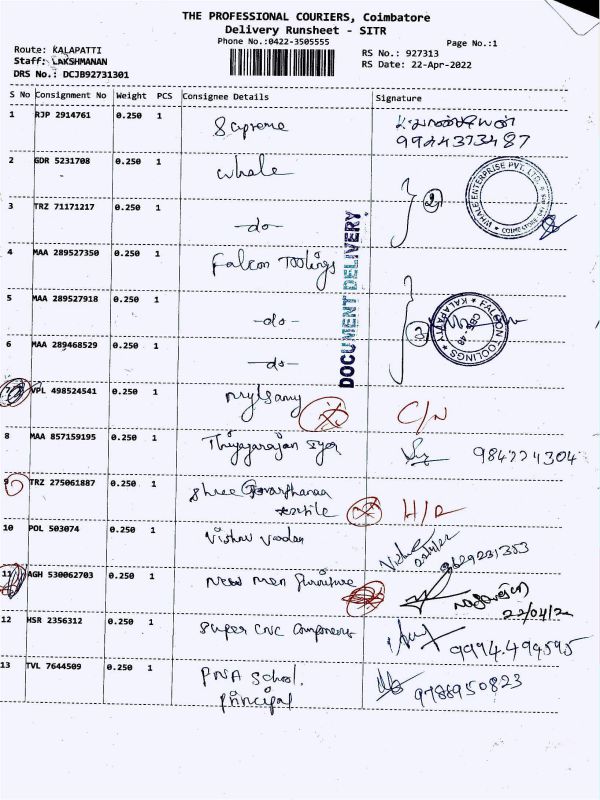 THE PROFESSIONAL COURIERS, Coimbatore
Delivery Runsheet - SITR
Phone No.:0422-3505555
Page No.:1
Route: KALAPATTI
RS No.: 927313
Staff: LAKSHMANAN
RS Date: 22-Apr-2022
DRS No.: DCJB92731301
S No Consignment No Weight PCS Consignee Details Signature
1 RJP 2914761 0.250 1 Supreme
9944373487
2 GDR 5231708 0.250 1 whale
WHALE ENTERPRISE PVT. LTD.
2
3 TRZ 71171217 0.250 1 -do-
DOCUMENT DELIVERY
4 MAA 289527350 0.250 1 Falcon Toolings
5 MAA 289527918 0.250 1 -do-
3
FALCON TOOLINGS ★ KALAPATTY ★
CBE-48
6 MAA 289468529 0.250 1 -do-
7 VPL 498524541 0.250 1 Mylsamy C/N
8 MAA 857159195 0.250 1 Thiyagarajan Iyer 984224304
9 TRZ 275061887 0.250 1 Shree Govarthanaa
textile
10 POL 503074 0.250 1 Vishnu
11 AGH 530062703 0.250 1 New Men furniture
22/04/22
12 HSR 2356312 0.250 1 Super CNC Components
9994.494595
13 TVL 7644509 0.250 1 PNA School.
principal
9788950823